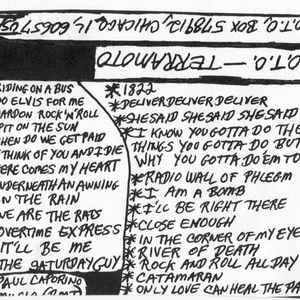 O.T.O. BOX 578912, CHICAGO, IL 60657 US
O.T.O. — TERRAMOTO
RIDING ON A BUS
DO ELVIS FOR ME
PARDON ROCK 'N' ROLL
SPIT ON THE SUN
WHEN DO WE GET PAID
I THINK OF YOU AND I DIE
HERE COMES MY HEART
UNDERNEATH AN AWNING
IN THE RAIN
WE ARE THE RATS
OVERTIME EXPRESS
IT'LL BE ME
THE SATURDAY GUY
PAUL CAPORINO
*1822
*DELIVER DELIVER DELIVER
*SHE SAID SHE SAID SHE SAID
*I KNOW YOU GOTTA DO THE
THINGS YOU GOTTA DO BUT
WHY YOU GOTTA DO 'EM TO
*RADIO WALL OF PHLEGM
*I AM A BOMB
*I'LL BE RIGHT THERE
*CLOSE ENOUGH
*IN THE CORNER OF MY EYE
*RIVER OF DEATH
*ROCK AND ROLL ALL DAY
*CATAMARAN
*ONLY LOVE CAN HEAL THE PA